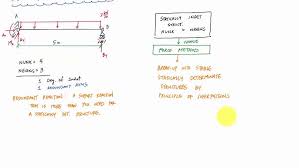 5m
NUNK = 4
NEQNS = 3
1 Deg. of Indet.
1 REDUNDANT RXNS
REDUNDANT REACTION: A SUPPORT REACTION
THAT IS MORE THAN YOU NEED FOR
A STATICALLY DET. STRUCTURE.
STATICALLY INDET
STRUCT:
NUNK > NEQNS
FORCE METHODS
BREAK-UP INTO STABLE
STATICALLY DETERMINATE
STRUCTURES BY
PRINCIPLE OF SUPERPOSITION